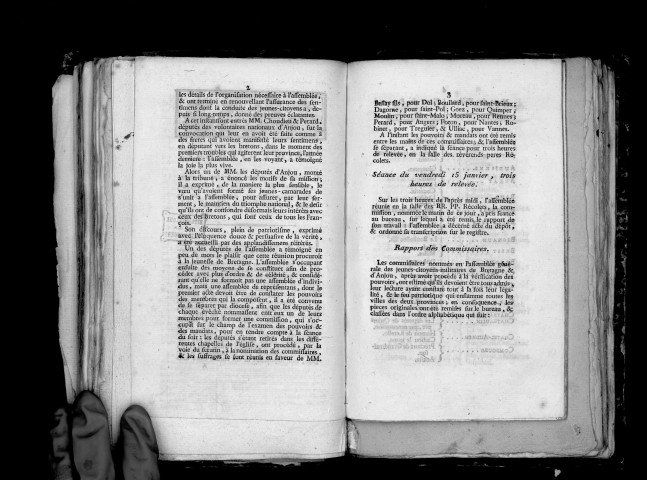 2
les détails de l'organisation nécessaire à l'assemblée,
& ont terminé en renouvellant l'assurance des sen-
timens dont la conduite des jeunes-citoyens a, de-
puis si long-temps, donné des preuves éclatantes.
A cet instant sont entrés MM. Choudieu & Perard,
députés des volontaires nationaux d'Anjou, sur la
convocation qui leur en avoit été faite comme à
des freres qui avoient manifesté leurs sentimens,
en députant vers les bretons, dans le moment des
premiers troubles qui agiterent leur province, l'année
derniere : l'assemblée, en les voyant, a témoigné
la joie la plus vive.
Alors un de MM. les députés d'Anjou, monté
à la tribune, a énoncé les motifs de sa mission;
il a exprimé, de la maniere la plus sensible, le
vœu qu'avoient formé ses jeunes-camarades de
s'unir à l'assemblée, pour assurer, par leur ser-
ment, le maintien du triomphe national, & le desir
qu'ils ont de confondre désormais leurs intérêts avec
ceux des bretons, qui sont ceux de tous les Fran-
çois.
Son discours, plein de patriotisme, exprimé
avec l'éloquence douce & persuasive de la vérité,
a été accueilli par des applaudissemens réitérés.
Un des députés de l'assemblée a témoigné en
peu de mots le plaisir que cette réunion procuroit
à la jeunesse de Bretagne. L'assemblée s'occupant
ensuite des moyens de se constituer afin de pro-
céder avec plus d'ordre & de célérité, & considé-
rant qu'elle ne formoit pas une assemblée d'indivi-
dus, mais une assemblée de représentans, dont le
premier acte devoit être de constater les pouvoirs
des membres qui la composent, il a été convenu
de se séparer par diocese, afin que les députés de
chaque évêché nommassent entr'eux un de leurs
membres pour former une commission, qui s'oc-
cupât sur le champ de l'examen des pouvoirs &
des mandats, pour en rendre compte à la séance
du soir : les députés s'étant retirés dans les diffé-
rentes chapelles de l'église, ont procédé, par la
voie du scrutin, à la nomination des commissaires,
& les suffrages se sont réunis en faveur de MM.
3
fils, pour Dol; Boullard, pour saint-Brieux;
Dagorne, pour saint-Pol; Goez, pour Quimper;
Moulin, pour saint-Malo; Moreau, pour Rennes;
Perard, pour Angers; Poton, pour Nantes; Ro-
binet, pour Treguier, & Ulliac, pour Vannes.
A l'instant les pouvoirs & mandats ont été remis
entre les mains de ces commissaires; & l'assemblée
se séparant, a indiqué la séance pour trois heures
de relevée, en la salle des révérends peres Ré-
colets.
Séance du vendredi 15 janvier, trois
heures de relevée.
Sur les trois heures de l'après midi, l'assemblée
réunie en la salle des RR. PP. Récolets, la com-
mission, nommée le matin de ce jour, a pris séance
au bureau, sur lequel a été remis le rapport de
son travail : l'assemblée a décerné acte du dépôt,
& ordonné sa transcription sur le registre.
Rapport des Commissaires.
Les commissaires nommés en l'assemblée géné-
rale des jeunes-citoyens-militaires de Bretagne &
d'Anjou, après avoir procédé à la vérification des
pouvoirs, ont estimé qu'ils devoient être tous admis,
leur lecture ayant constaté tout à la fois leur léga-
lité, & le feu patriotique qui enflamme toutes les
villes des deux provinces; en conséquence, les
pieces originales ont été remises sur le bureau, &
classées dans l'ordre alphabétique qui suit :